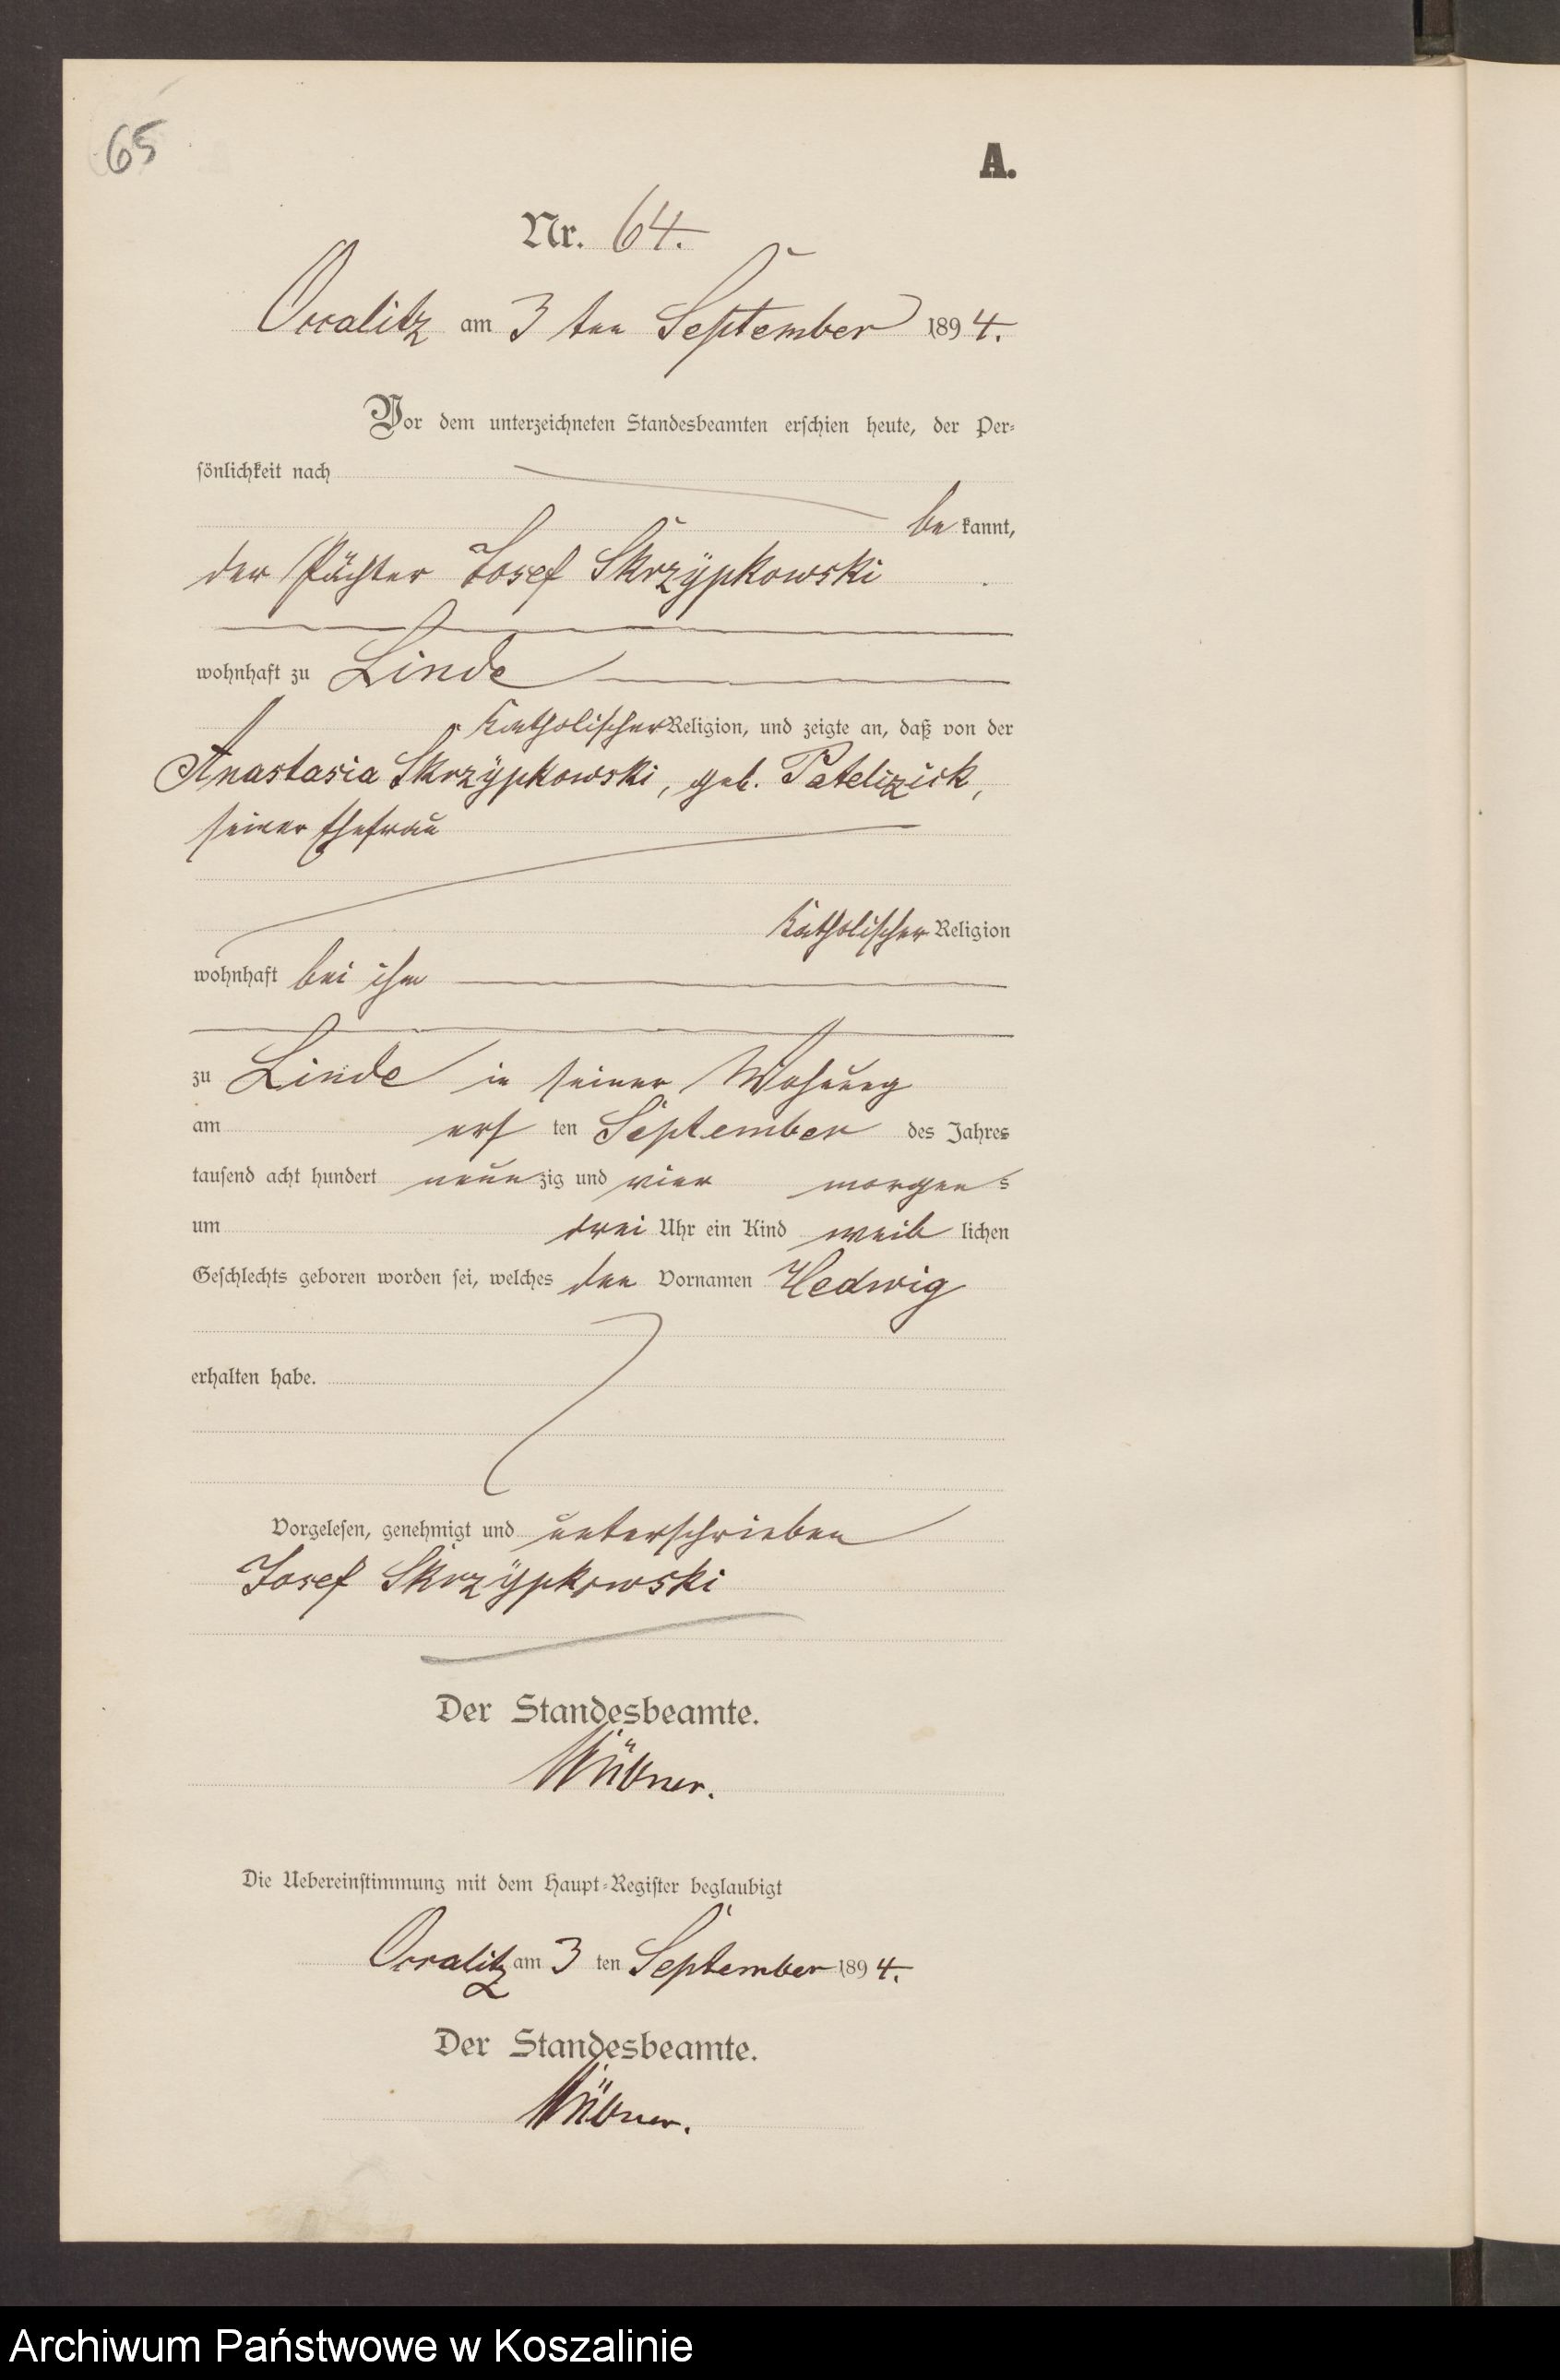 65
A.
Nr. 64.
Occalitz am 3 ten September 1894.
Vor dem unterzeichneten Standesbeamten erschien heute, der Per-
sönlichkeit nach
be kannt,
der Pächter Josef Skrzÿpkowski
wohnhaft zu Linde
katholischer Religion, und zeigte an, daß von der
Anastasia Skrzÿpkowski, geb. Patelizick,
seiner Ehefrau
katholischer Religion
wohnhaft bei ihm
zu Linde in seiner Wohnung
am ersten September des Jahres
tausend acht hundert neunzig und vier morgens
um drei Uhr ein Kind weiblichen
Geschlechts geboren worden sei, welches den Vornamen Hedwig
erhalten habe.
Vorgelesen, genehmigt und unterschrieben
Josef Skrzÿpkowski
Der Standesbeamte.
Die Uebereinstimmung mit dem Haupt-Register beglaubigt
Occalitz am 3 ten September 1894.
Der Standesbeamte.
Archiwum Państwowe w Koszalinie